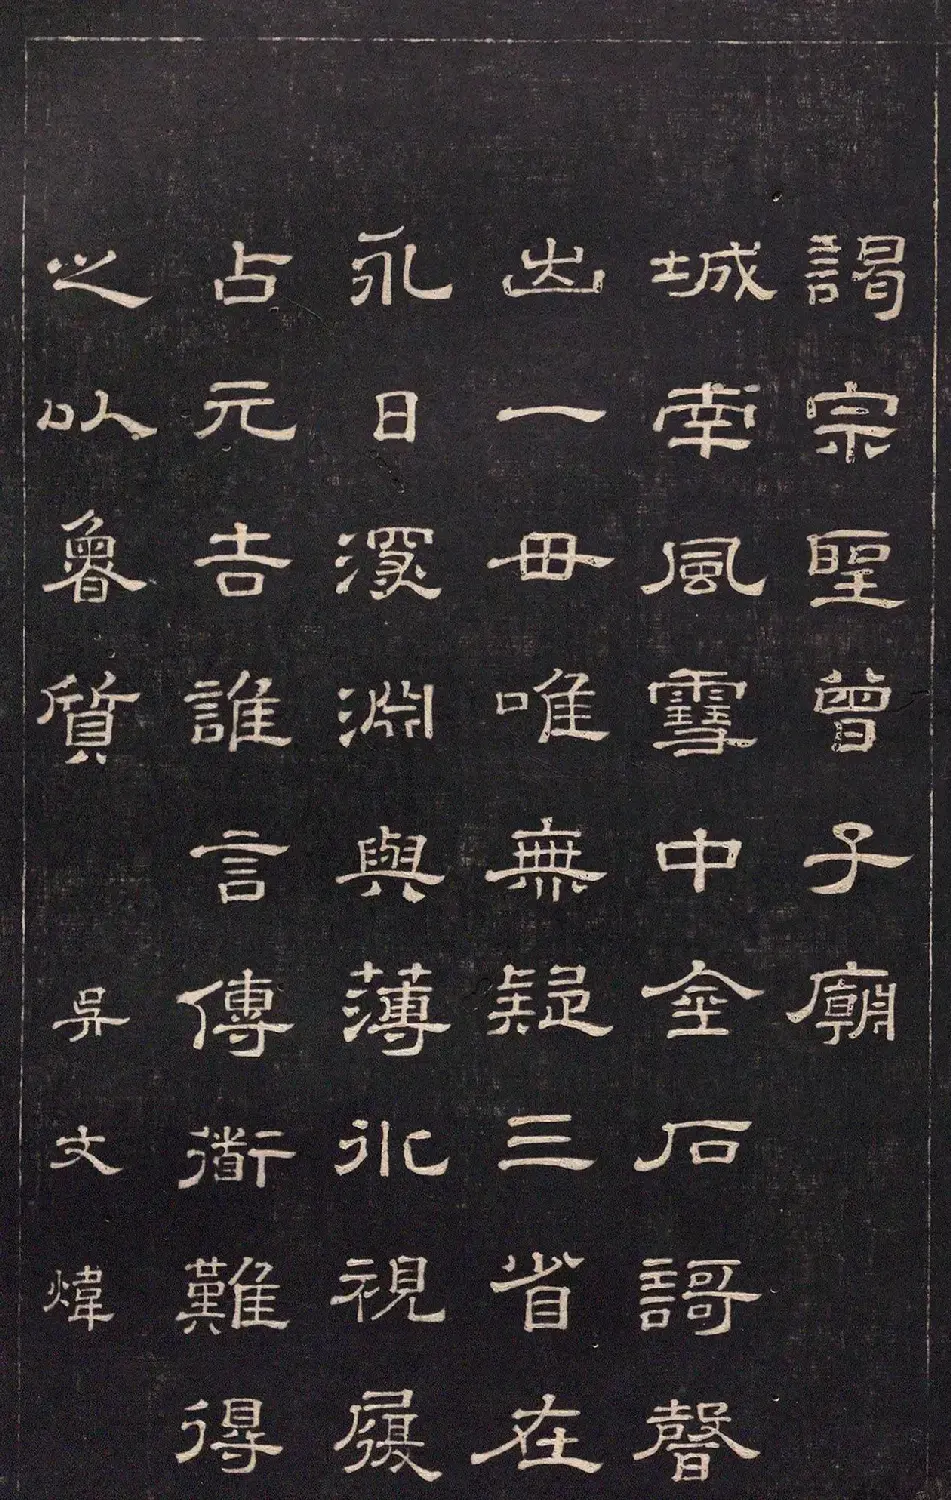 謁宗聖曾子廟
城南風雪中金石謌聲
出一毋唯無疑三省在
永日深淵與薄冰視履
占元吉誰言傳衜難得
之以魯質 吳文煒